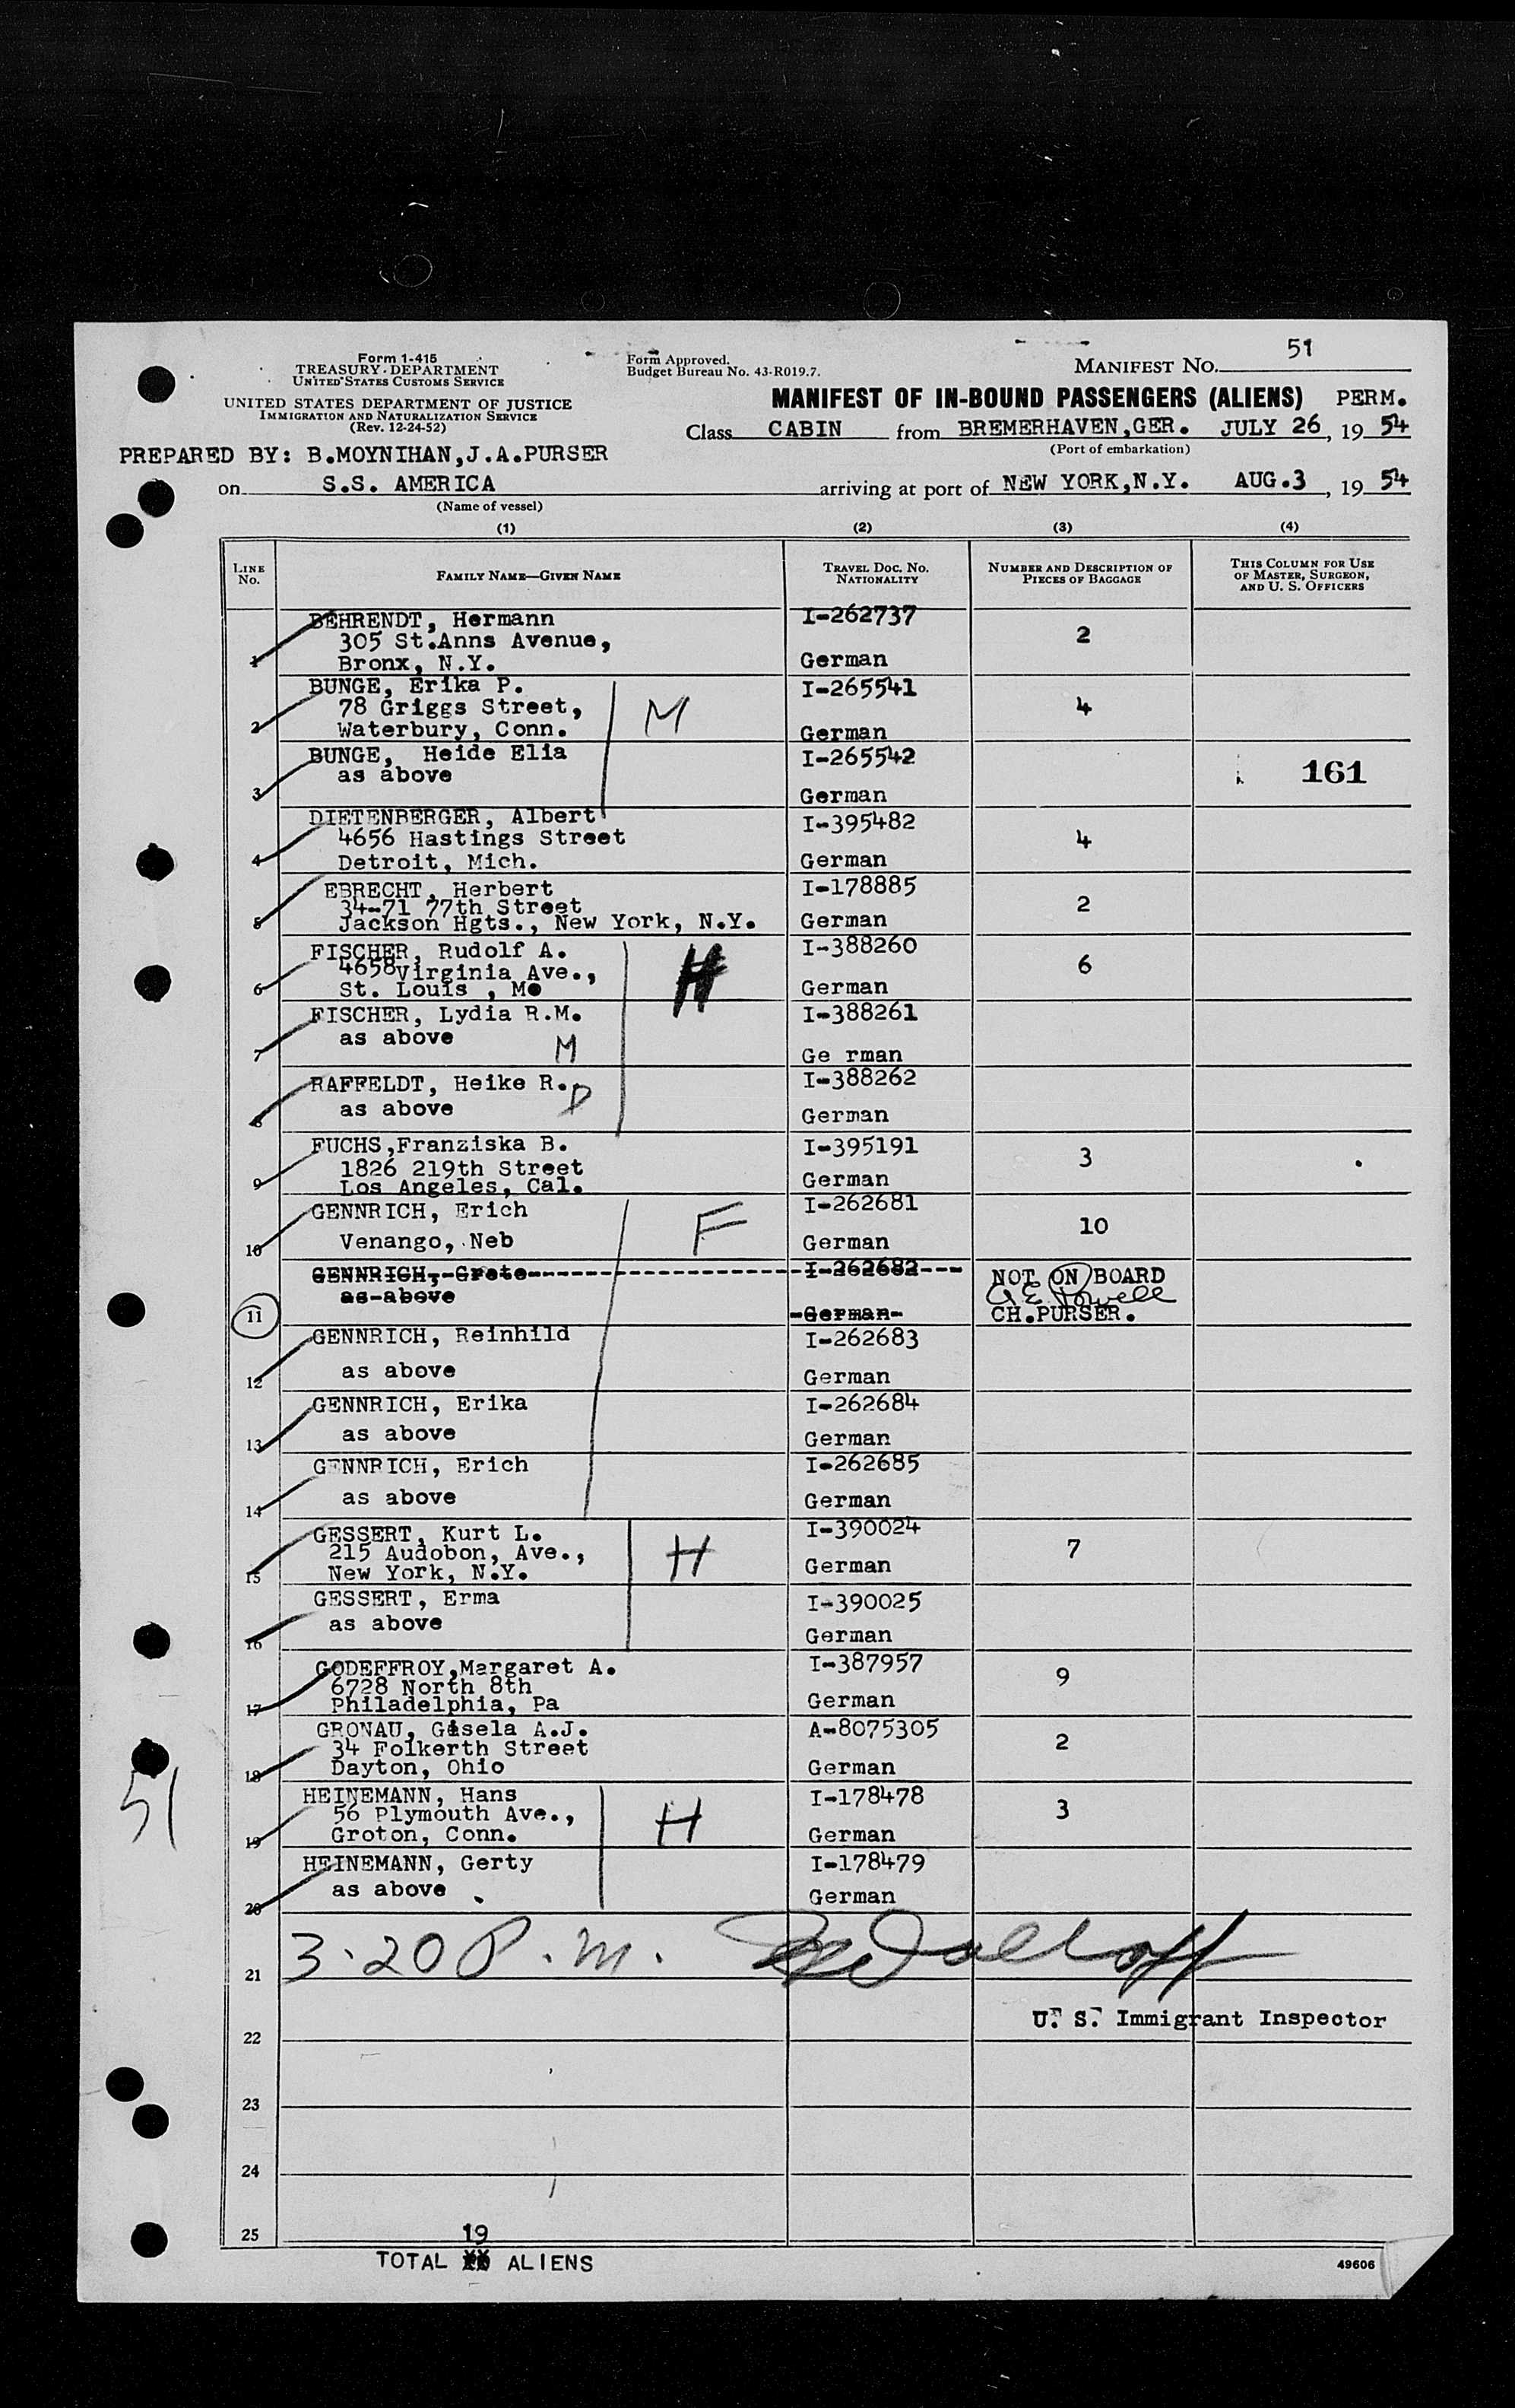 Form 1-415
TREASURY DEPARTMENT
UNITED STATES CUSTOMS SERVICE
UNITED STATES DEPARTMENT OF JUSTICE
IMMIGRATION AND NATURALIZATION SERVICE
(Rev. 12-24-52)
Form Approved.
Budget Bureau No. 43-R019.7.
MANIFEST NO. 51
MANIFEST OF IN-BOUND PASSENGERS (ALIENS) PERM.
Class CABIN from BREMERHAVEN,GER. JULY 26, 19 54
(Port of embarkation)
PREPARED BY: B.MOYNIHAN,J.A.PURSER
on S.S. AMERICA arriving at port of NEW YORK,N.Y. AUG.3, 19 54
(Name of vessel)
(1) (2) (3) (4)
LINE NO. FAMILY NAME—GIVEN NAME TRAVEL DOC. NO. NATIONALITY NUMBER AND DESCRIPTION OF PIECES OF BAGGAGE THIS COLUMN FOR USE OF MASTER, SURGEON, AND U. S. OFFICERS
BEHRENDT, Hermann I-262737
305 St.Anns Avenue, 2
1 Bronx, N.Y. German
BUNGE, Erika P. I-265541
78 Griggs Street, M 4
2 Waterbury, Conn. German
BUNGE, Heide Elia I-265542
as above 161
3 German
DIETENBERGER, Albert I-395482
4656 Hastings Street 4
4 Detroit, Mich. German
EBRECHT, Herbert I-178885
34-71 77th Street 2
5 Jackson Hgts., New York, N.Y. German
FISCHER, Rudolf A. I-388260
4658Virginia Ave., H 6
6 St. Louis , Mo German
FISCHER, Lydia R.M. I-388261
as above
7 M Ge rman
RAFFELDT, Heike R. I-388262
as above D
8 German
FUCHS,Franziska B. I-395191
1826 219th Street 3
9 Los Angeles, Cal. German
GENNRICH, Erich I-262681
F 10
10 Venango, Neb German
GENNRICH, Grete I-262682 NOT ON BOARD
as above
11 German CH.PURSER.
A E Powell
GENNRICH, Reinhild I-262683
12 as above German
GENNRICH, Erika I-262684
13 as above German
GENNRICH, Erich I-262685
14 as above German
GESSERT, Kurt L. I-390024
215 Audobon, Ave., H 7
15 New York, N.Y. German
GESSERT, Erma I-390025
as above
16 German
GODEFFROY,Margaret A. I-387957
6728 North 8th 9
17 Philadelphia, Pa German
GRONAU, Gisela A.J. A-8075305
34 Folkerth Street 2
18 Dayton, Ohio German
HEINEMANN, Hans I-178478
56 Plymouth Ave., H 3
19 Groton, Conn. German
51
HEINEMANN, Gerty I-178479
as above
20 German
21 3.20 P.m.
U. S. Immigrant Inspector
22
23
24
25 19
TOTAL ALIENS
49606